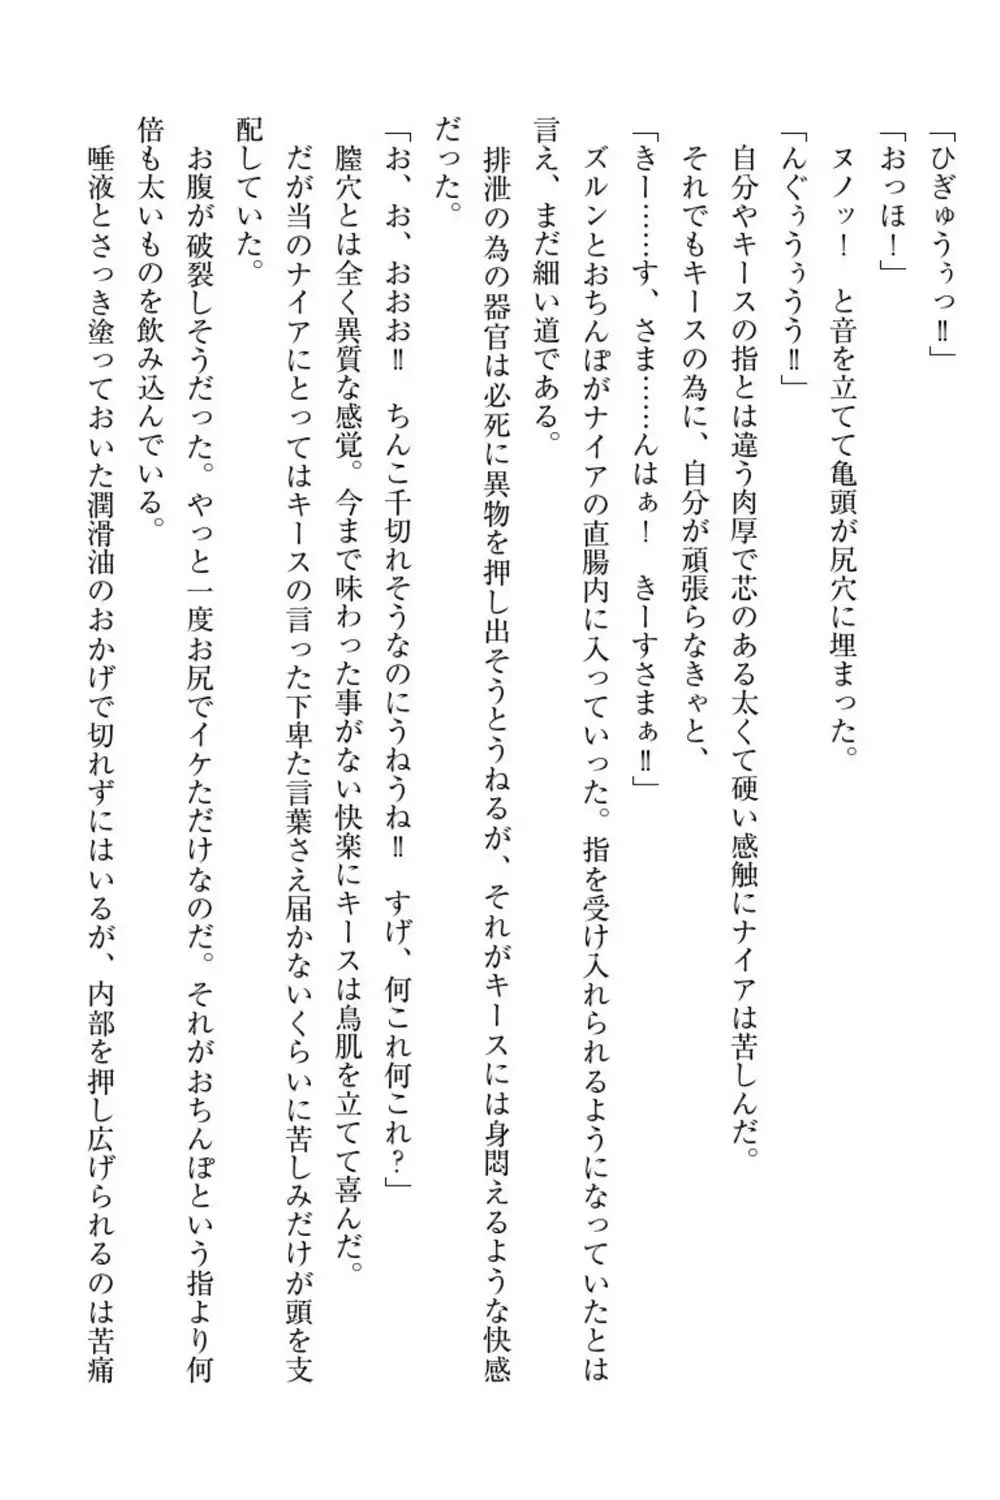 「ひぎゅうぅっ‼」
「おっほ！」
　ヌノッ！　と音を立てて亀頭が尻穴に埋まった。
「んぐぅうぅうう‼」
　自分やキースの指とは違う肉厚で芯のある太くて硬い感触にナイアは苦しんだ。
　それでもキースの為に、自分が頑張らなきゃと、
「きー……す、さま……んはぁ！　きーすさまぁ‼」
　ズルンとおちんぽがナイアの直腸内に入っていった。指を受け入れられるようになっていたとは
言え、まだ細い道である。
　排泄の為の器官は必死に異物を押し出そうとうねるが、それがキースには身悶えるような快感
だった。
「お、お、おおお‼　ちんこ千切れそうなのにうねうね‼　すげ、何これ何これ？」
　膣穴とは全く異質な感覚。今まで味わった事がない快楽にキースは鳥肌を立てて喜んだ。
　だが当のナイアにとってはキースの言った下卑た言葉さえ届かないくらいに苦しみだけが頭を支
配していた。
　お腹が破裂しそうだった。やっと一度お尻でイケただけなのだ。それがおちんぽという指より何
倍も太いものを飲み込んでいる。
　唾液とさっき塗っておいた潤滑油のおかげで切れずにはいるが、内部を押し広げられるのは苦痛